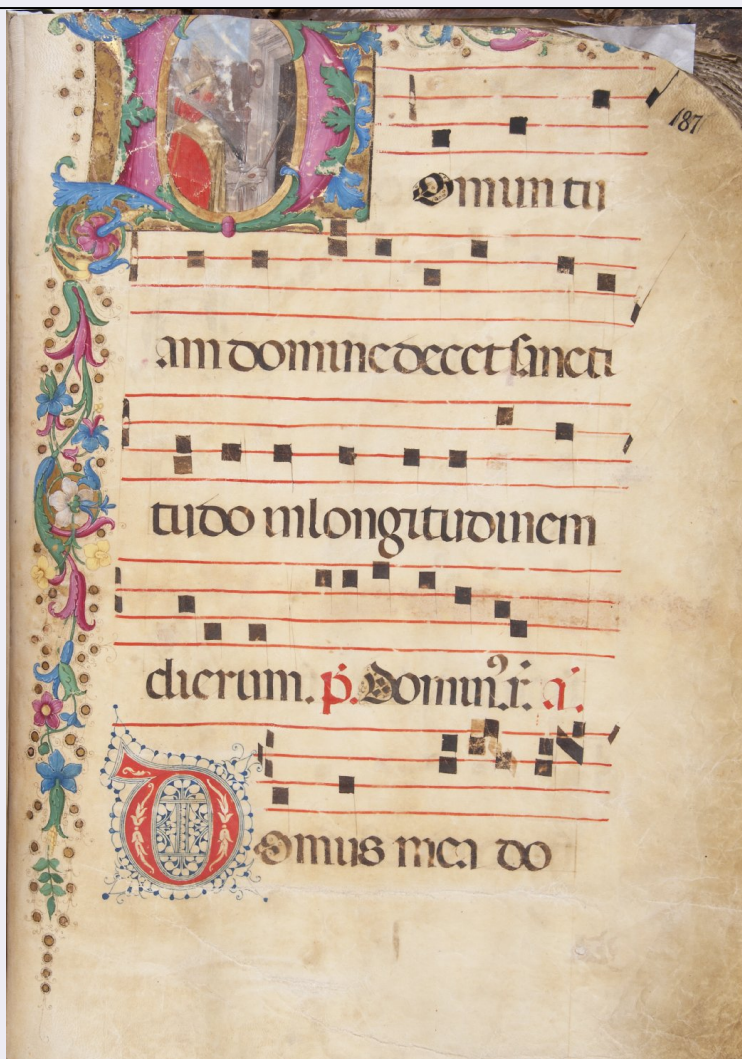 187
Domum tu
am domine decet sancti
tudo in longitudinem
dierum. p. Domin9.r. a.
Domus mea do